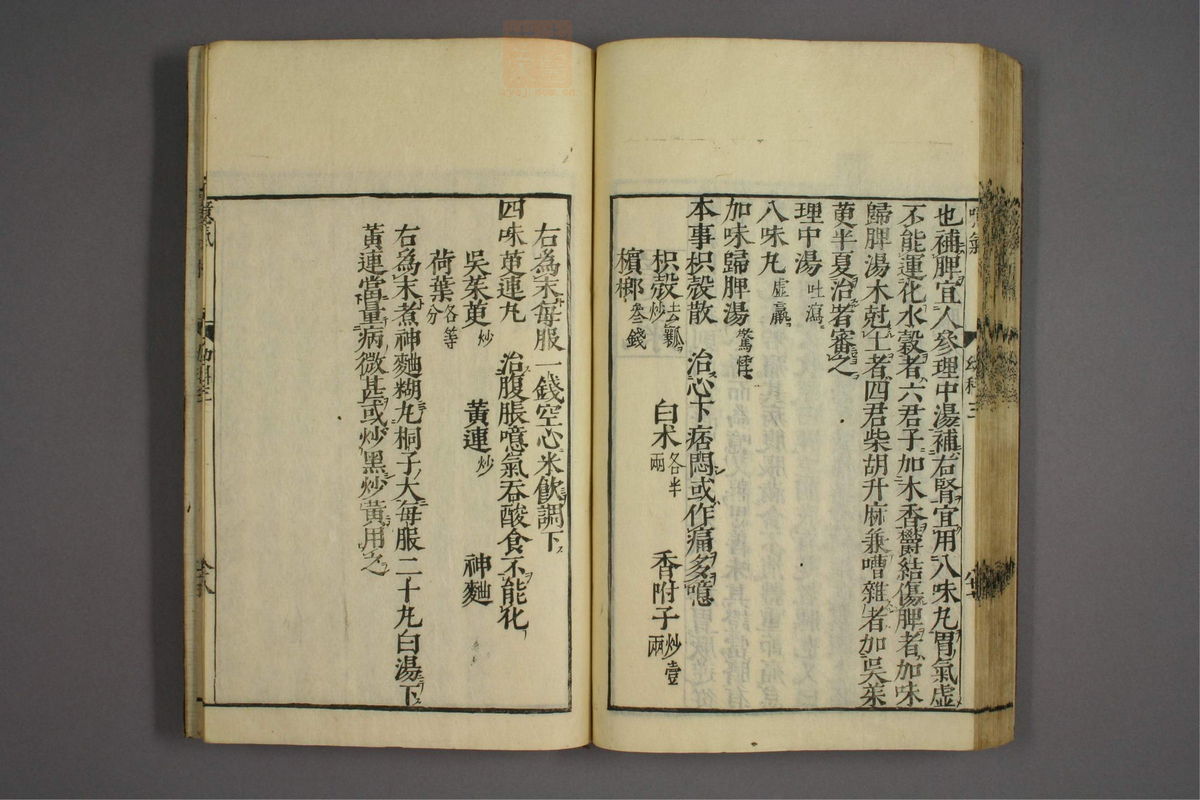 也補脾宜人參理中湯補右腎宜用八味丸胃氣虛
不能運化水穀者六君子加木香鬱結傷脾者加味
歸脾湯木尅土者四君柴胡升麻兼嘈雜者加吳茱
萸半夏治者審之
理中湯 吐瀉
八味丸 虛羸
加味歸脾湯 驚悸
本事枳殼散 治心下痞悶或作痛多噫
枳殼 去瓤炒 白朮 各半兩 香附子 炒壹兩
檳榔 叁錢
右為末每服一錢空心米飲調下
四味萸連丸 治腹脹噫氣吞酸食不能化
吳茱萸 炒 黃連 炒 神麯
荷葉 各等分
右為末煮神麯糊丸桐子大每服二十丸白湯下
黃連當量病微甚或炒黑炒黃用之